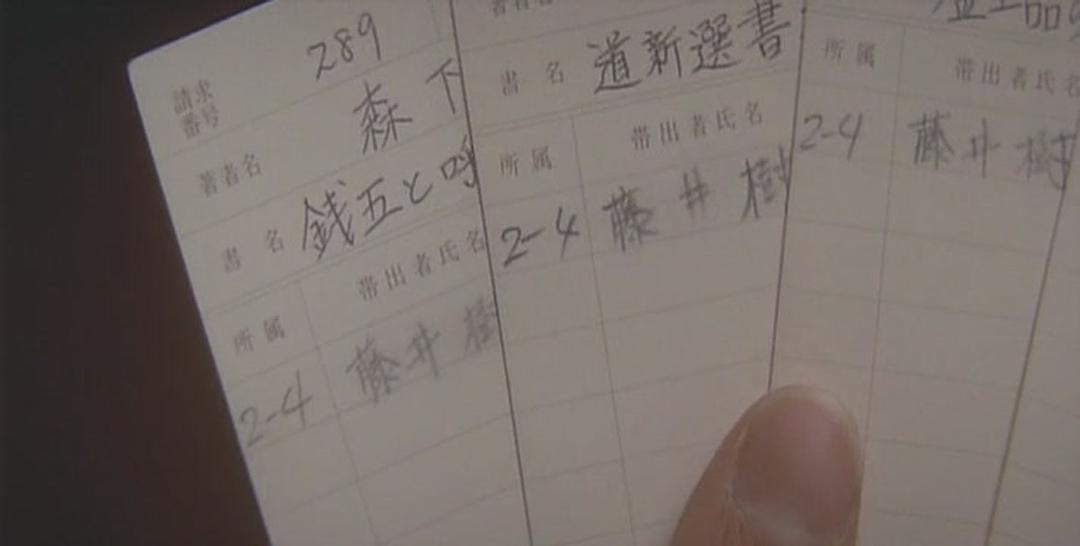 請求番号 289
著者名 森下
書名 銭五と呼
所属 帯出者氏名
2-4 藤井樹
著者名
書名 道新選書
所属 帯出者氏名
2-4 藤井樹
所属 帯出者氏名
2-4 藤井樹